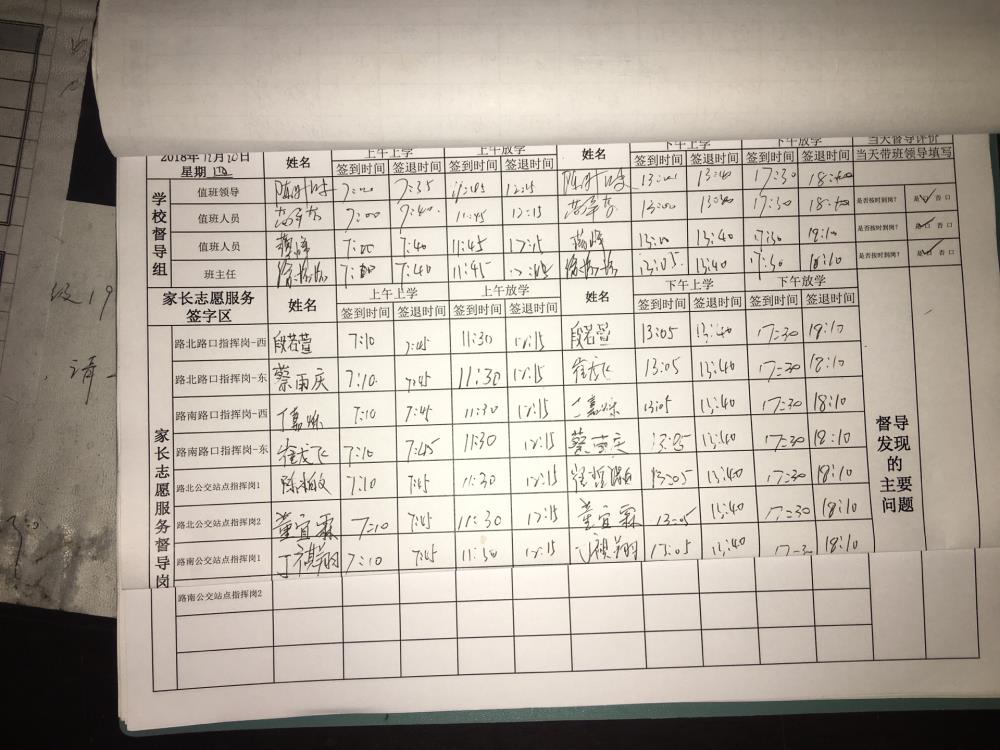 2018年12月20日
星期 四
姓名 上午上学 上午放学 姓名 下午上学 下午放学 当天督导评价
签到时间 签退时间 签到时间 签退时间 签到时间 签退时间 签到时间 签退时间 当天带班领导填写
学校督导组
值班领导 7:00 7:35 11:45 12:15 13:00 13:40 17:30 18:10
值班人员 7:00 7:40 11:45 12:15 13:00 13:40 17:30 18:10 是否按时到岗? 是 否
值班人员 7:00 7:40 11:45 12:15 13:00 13:40 17:30 18:10 是否按时到岗? 是 否
班主任 7:00 7:40 11:45 13:05 13:40 17:30 18:10 是否按时到岗? 是 否
家长志愿服务 姓名 上午上学 上午放学 姓名 下午上学 下午放学
签字区 签到时间 签退时间 签到时间 签退时间 签到时间 签退时间 签到时间 签退时间
家长志愿服务督导岗
路北路口指挥岗-西 段若萱 7:10 7:45 11:30 12:15 段若萱 13:05 13:40 17:30 18:10
路北路口指挥岗-东 蔡雨庆 7:10 7:45 11:30 12:15 13:05 13:40 17:30 18:10
路南路口指挥岗-西 7:10 7:45 11:30 12:15 13:05 13:40 17:30 18:10
路南路口指挥岗-东 7:10 7:45 11:30 12:15 蔡雨庆 13:05 13:40 17:30 18:10
路北公交站点指挥岗1 7:10 7:45 11:30 12:15 13:05 13:40 17:30 18:10
路北公交站点指挥岗2 董宜霖 7:10 7:45 11:30 12:15 董宜霖 13:05 13:40 17:30 18:10
路南公交站点指挥岗1 丁祺翔 7:10 7:45 11:30 12:15 丁祺翔 13:05 13:40 17:30 18:10
路南公交站点指挥岗2
督导
发现
的
主要
问题
级19
请